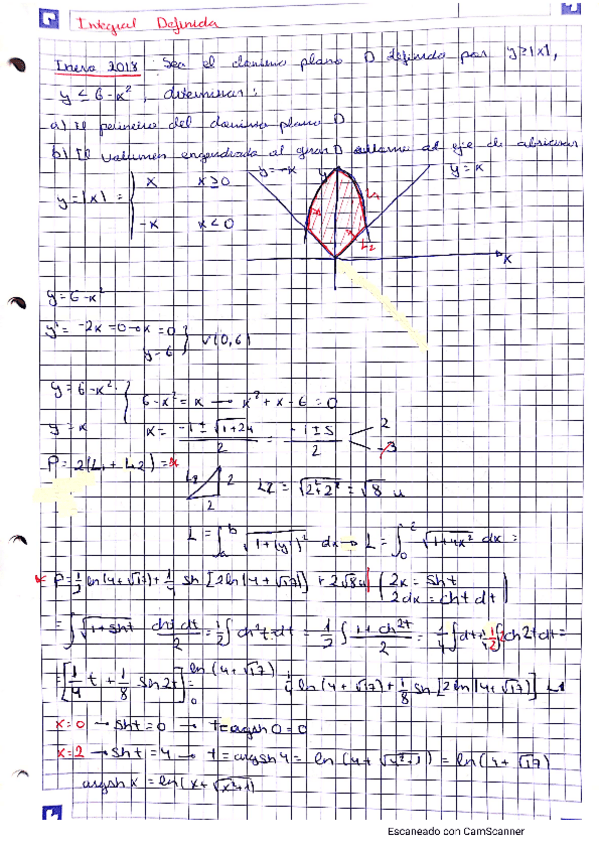 Integral Definida
Enero 2018 Sea el dominio plano D definido por y≥|x|,
y ≤ 6-x², determinar:
a) El perímetro del dominio plano D
b) El volumen engendrado al girar D al eje de abscisas
y=|x| = { x x≥0
-x x<0
y=-x
y=x
y
x
L1
L2
y=6-x²
y'=-2x=0→x=0
y=6 } V(0,6)
y=6-x²
y=x } 6-x²=x → x²+x-6=0
x= -1±√1+24 / 2 = -1±5 / 2 < 2
-3
P=2(L1+L2)=*
L2 2
2
L2 = √2²+2² = √8 u
L=∫ₐᵇ √1+(y')² dx → L=∫₀² √1+4x² dx =
* P=1/2 ln(4+√17)+1/4 sh[2ln(4+√17)]+2√8 u (2x=sht
2dx=cht dt)
=∫√1+sh²t cht dt/2 = 1/2 ∫ch²t dt = 1/2 ∫ 1+ch2t / 2 = 1/4 ∫dt+1/4 1/2 ∫2ch2t dt=
=[1/4 t + 1/8 sh2t]₀ ln(4+√17) = 1/4 ln(4+√17)+1/8 sh[2ln(4+√17)] L1
x=0 → sht=0 → t=argsh0=0
x=2 → sht=4 → t=argsh4= ln(4+√4²+1) = ln(4+√17)
argshx = ln(x+√x²+1)
Escaneado con CamScanner